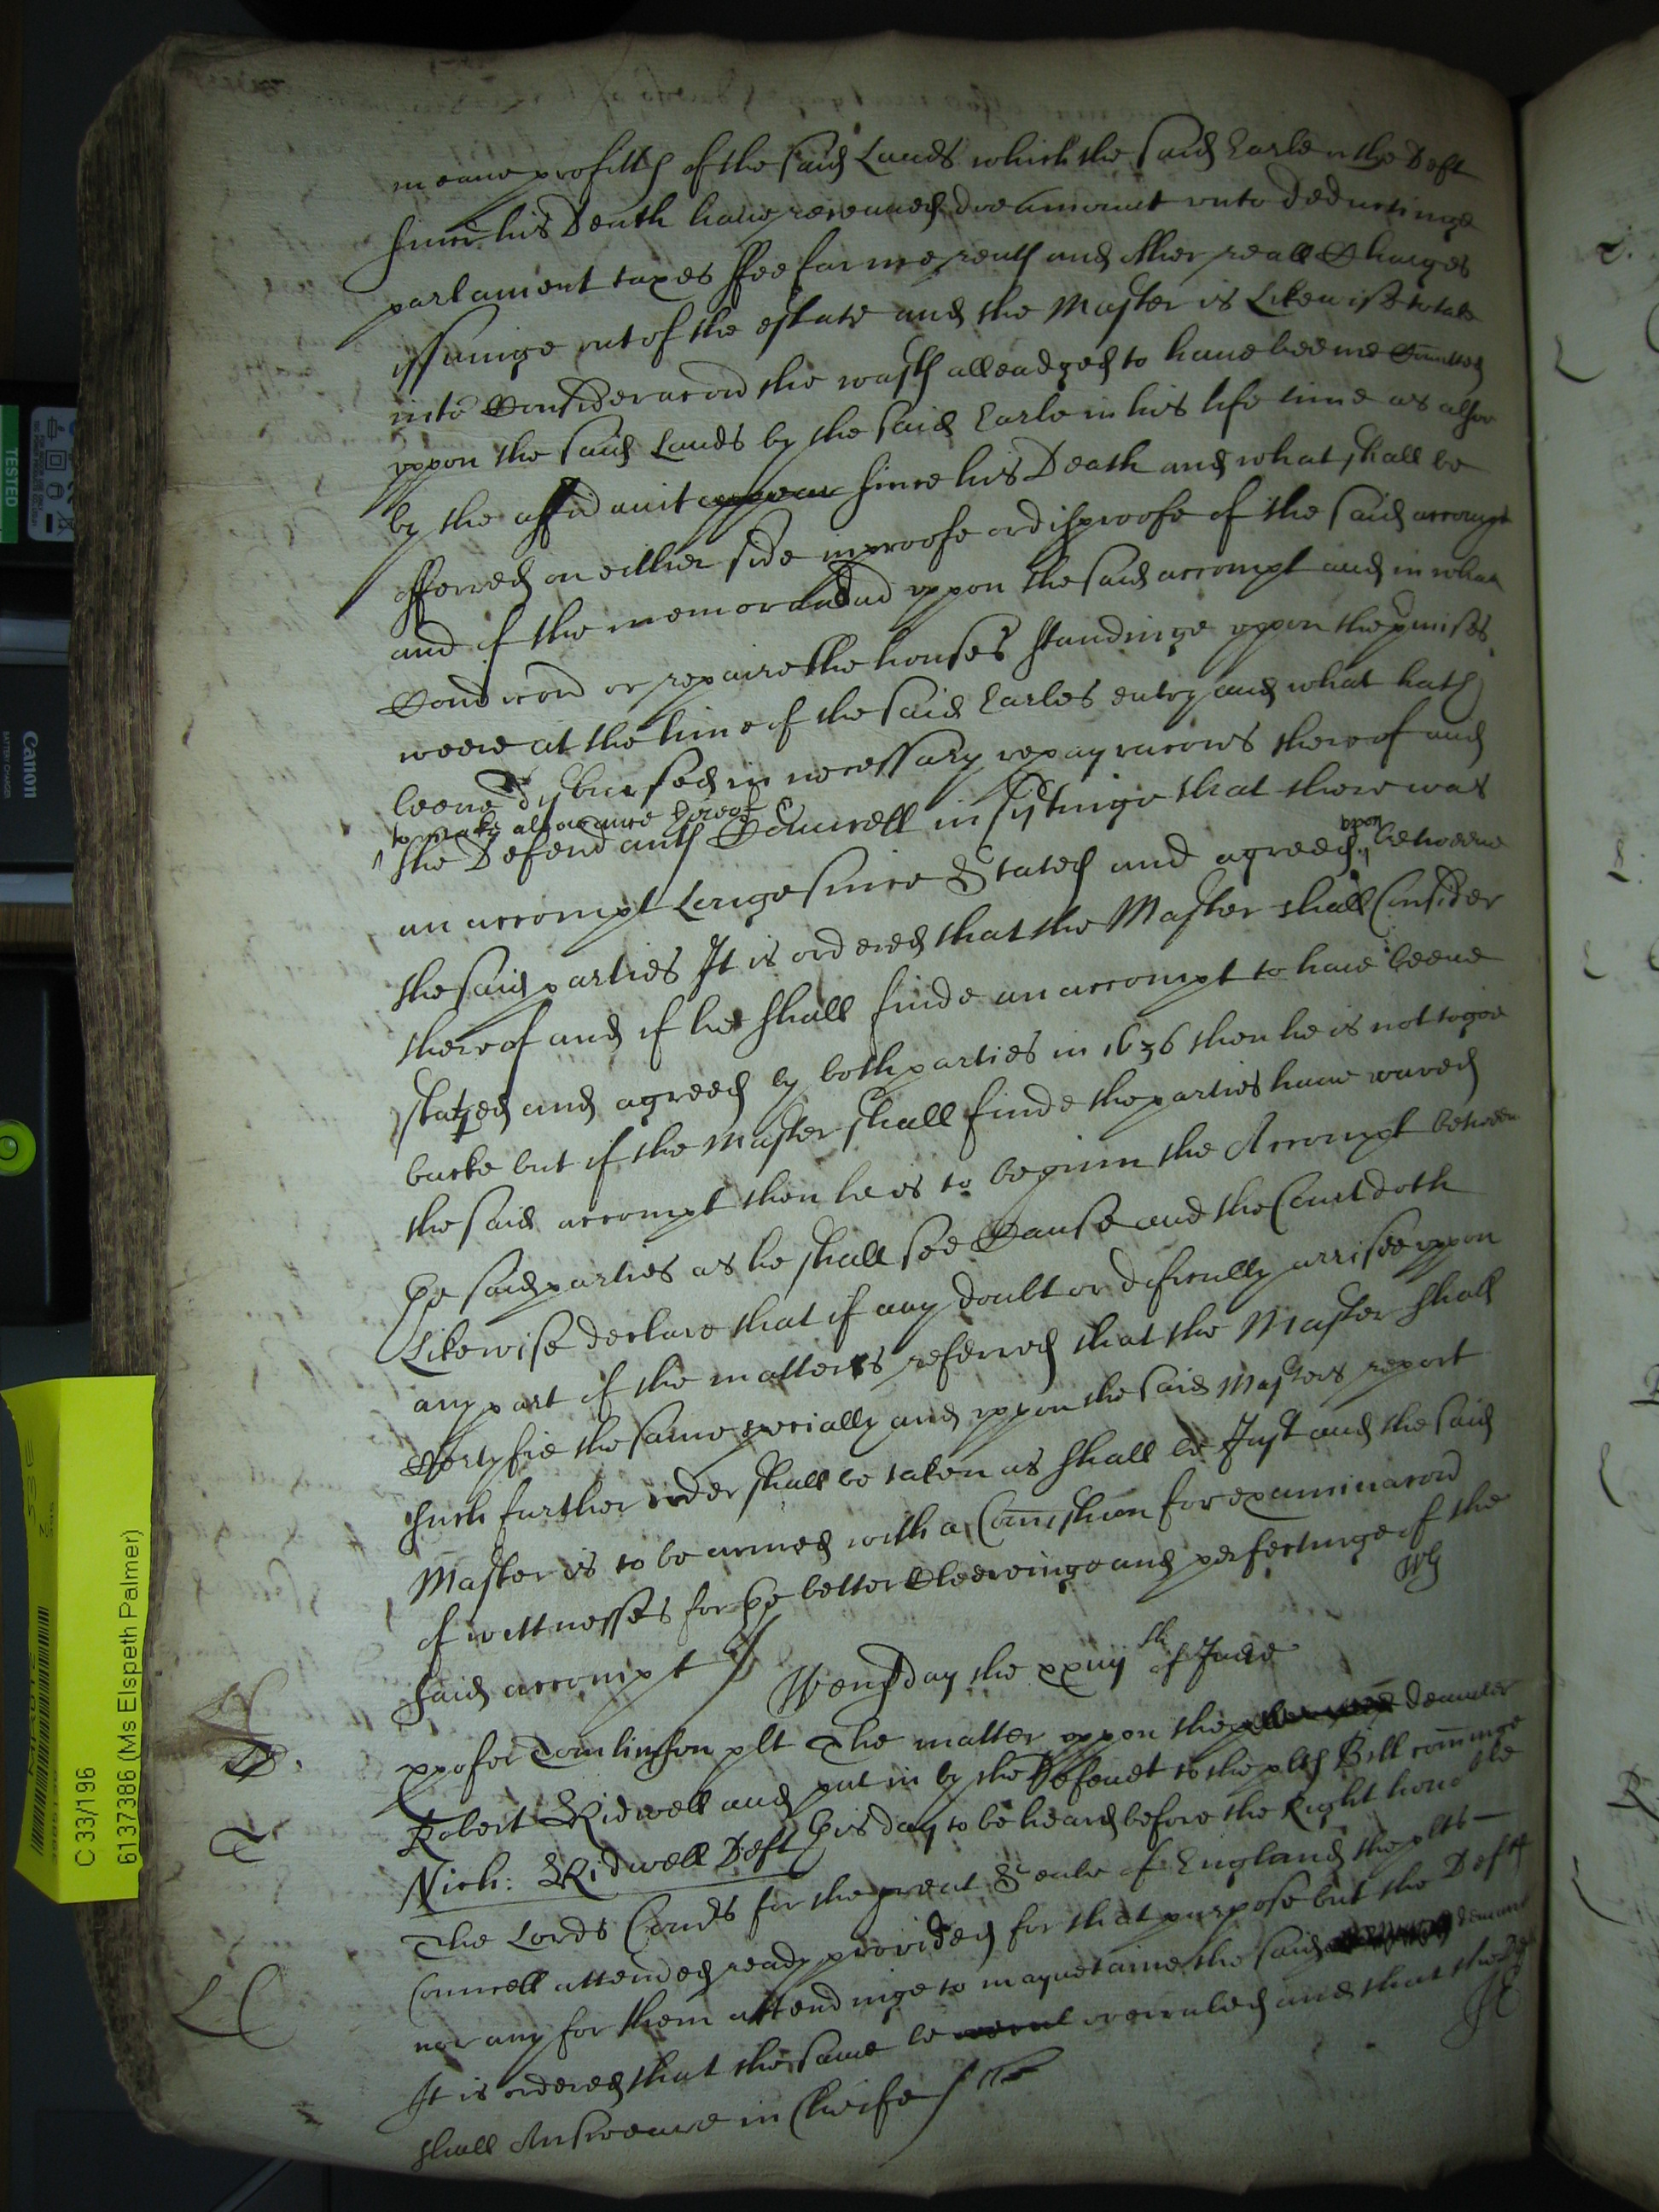 meane profitts of the said Lands which the said Earle or the Deft
since his Death have receaued doe amount vnto Deductinge
parlament taxes ffee farme rents and other reall Charges
issuinge out of the estate and the Master is Likewise to take
into Consideracon the wasts alleadged to haue beene Comitted
vppon the said Lands by the said Earle in his life time as alsoe
by the affidauit appeare since his Death and what shall be
offered on either side in proofe or disproofe of the said accompt
and of the memorandad vppon the said accompt and in what
Condicon or repaire the houses standinge vppon the premises
weere at the time of the said Earles entry and what hath
beene disbursed in necessary repayracons thereof and
to make allowance thereof
the Defendants Councell insistinge that there was
an accompt Longe since Stated and agreed vpon betweene
the said parties It is ordered that the Master shall Consider
thereof and if hee shall finde an accompt to haue beene
stated and agreed by both parties in 1636 then he is not to goe
backe but if the Master shall finde the parties haue waved
the said accompt then he is to beginn the Accompt between
the said parties as he shall see Cause and the Court doth
Likewise declare that if any doubt or dificulty arrise vppon
any part of the matters referred that the Master shall
Certyfie the same specially and vppon the said Masters report
such further order shall be taken as shall be Just and the said
Master is to be armed with a Comission for examinacon
of wittnesses for the better Cleeringe and perfectinge of the
said accompt
Wensday the xxiiijth of June
xpofer Tomlinson plt The matter vppon the demurrer
Robert Ridwell and put in by the Defendt to the plts Bill cominge
Nich: Ridwell Defts this day to be heard before the Right honoble
The Lords Comrs for the great Seale of England the plts
Councell attended ready provided for that purpose but the Defts
nor any for them attendinge to maynetaine the said demurrer
It is ordered that the same be overruled and that the Defts
shall Answeare in Cheife
T
LC
TESTED
Canon
BATTERY CHARGER
C 33/196
6137386 (Ms Elspeth Palmer)